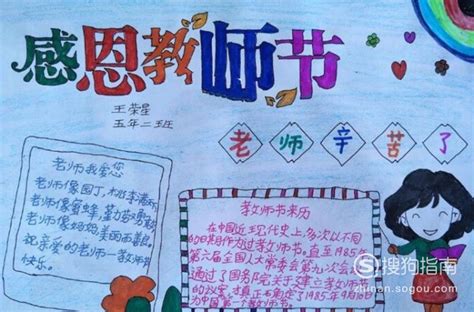 感恩教师节
王荣星
五年二班
老师辛苦了
老师我爱您
老师像园丁,桃李满
老师像蜜蜂,勤劳勇敢
老师像妈妈,美丽而善良
祝亲爱的老师—教师节
快乐。
教师节来历
在中国近现代史上,多次以不同
的日期作为过教师节。直至1985年
第六届全国人大常委会第九次会议
通过了国务院关于建立教师节
的议案,才真正确定了1985年9月10日
为中国第一个教师节。
搜狗指南
zhinan.sogou.com